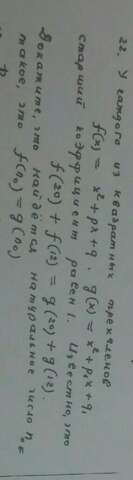 22. У каждого из квадратных трёхчленов
f(x) = x² + px + q, g(x) = x² + p₁x + q₁
старший коэффициент равен 1. Известно, что
f(20) + f(12) = g(20) + g(12).
Докажите, что найдётся натуральное число n₀
такое, что f(n₀) = g(n₀)